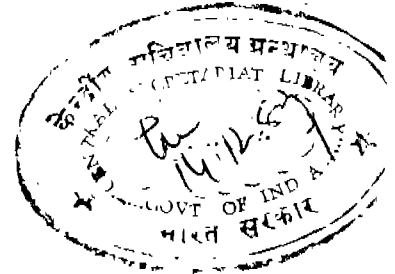 केन्द्रीय सचिवालय ग्रन्थागार
CENTRAL SECRETARIAT LIBRARY
GOVT OF INDIA
भारत सरकार